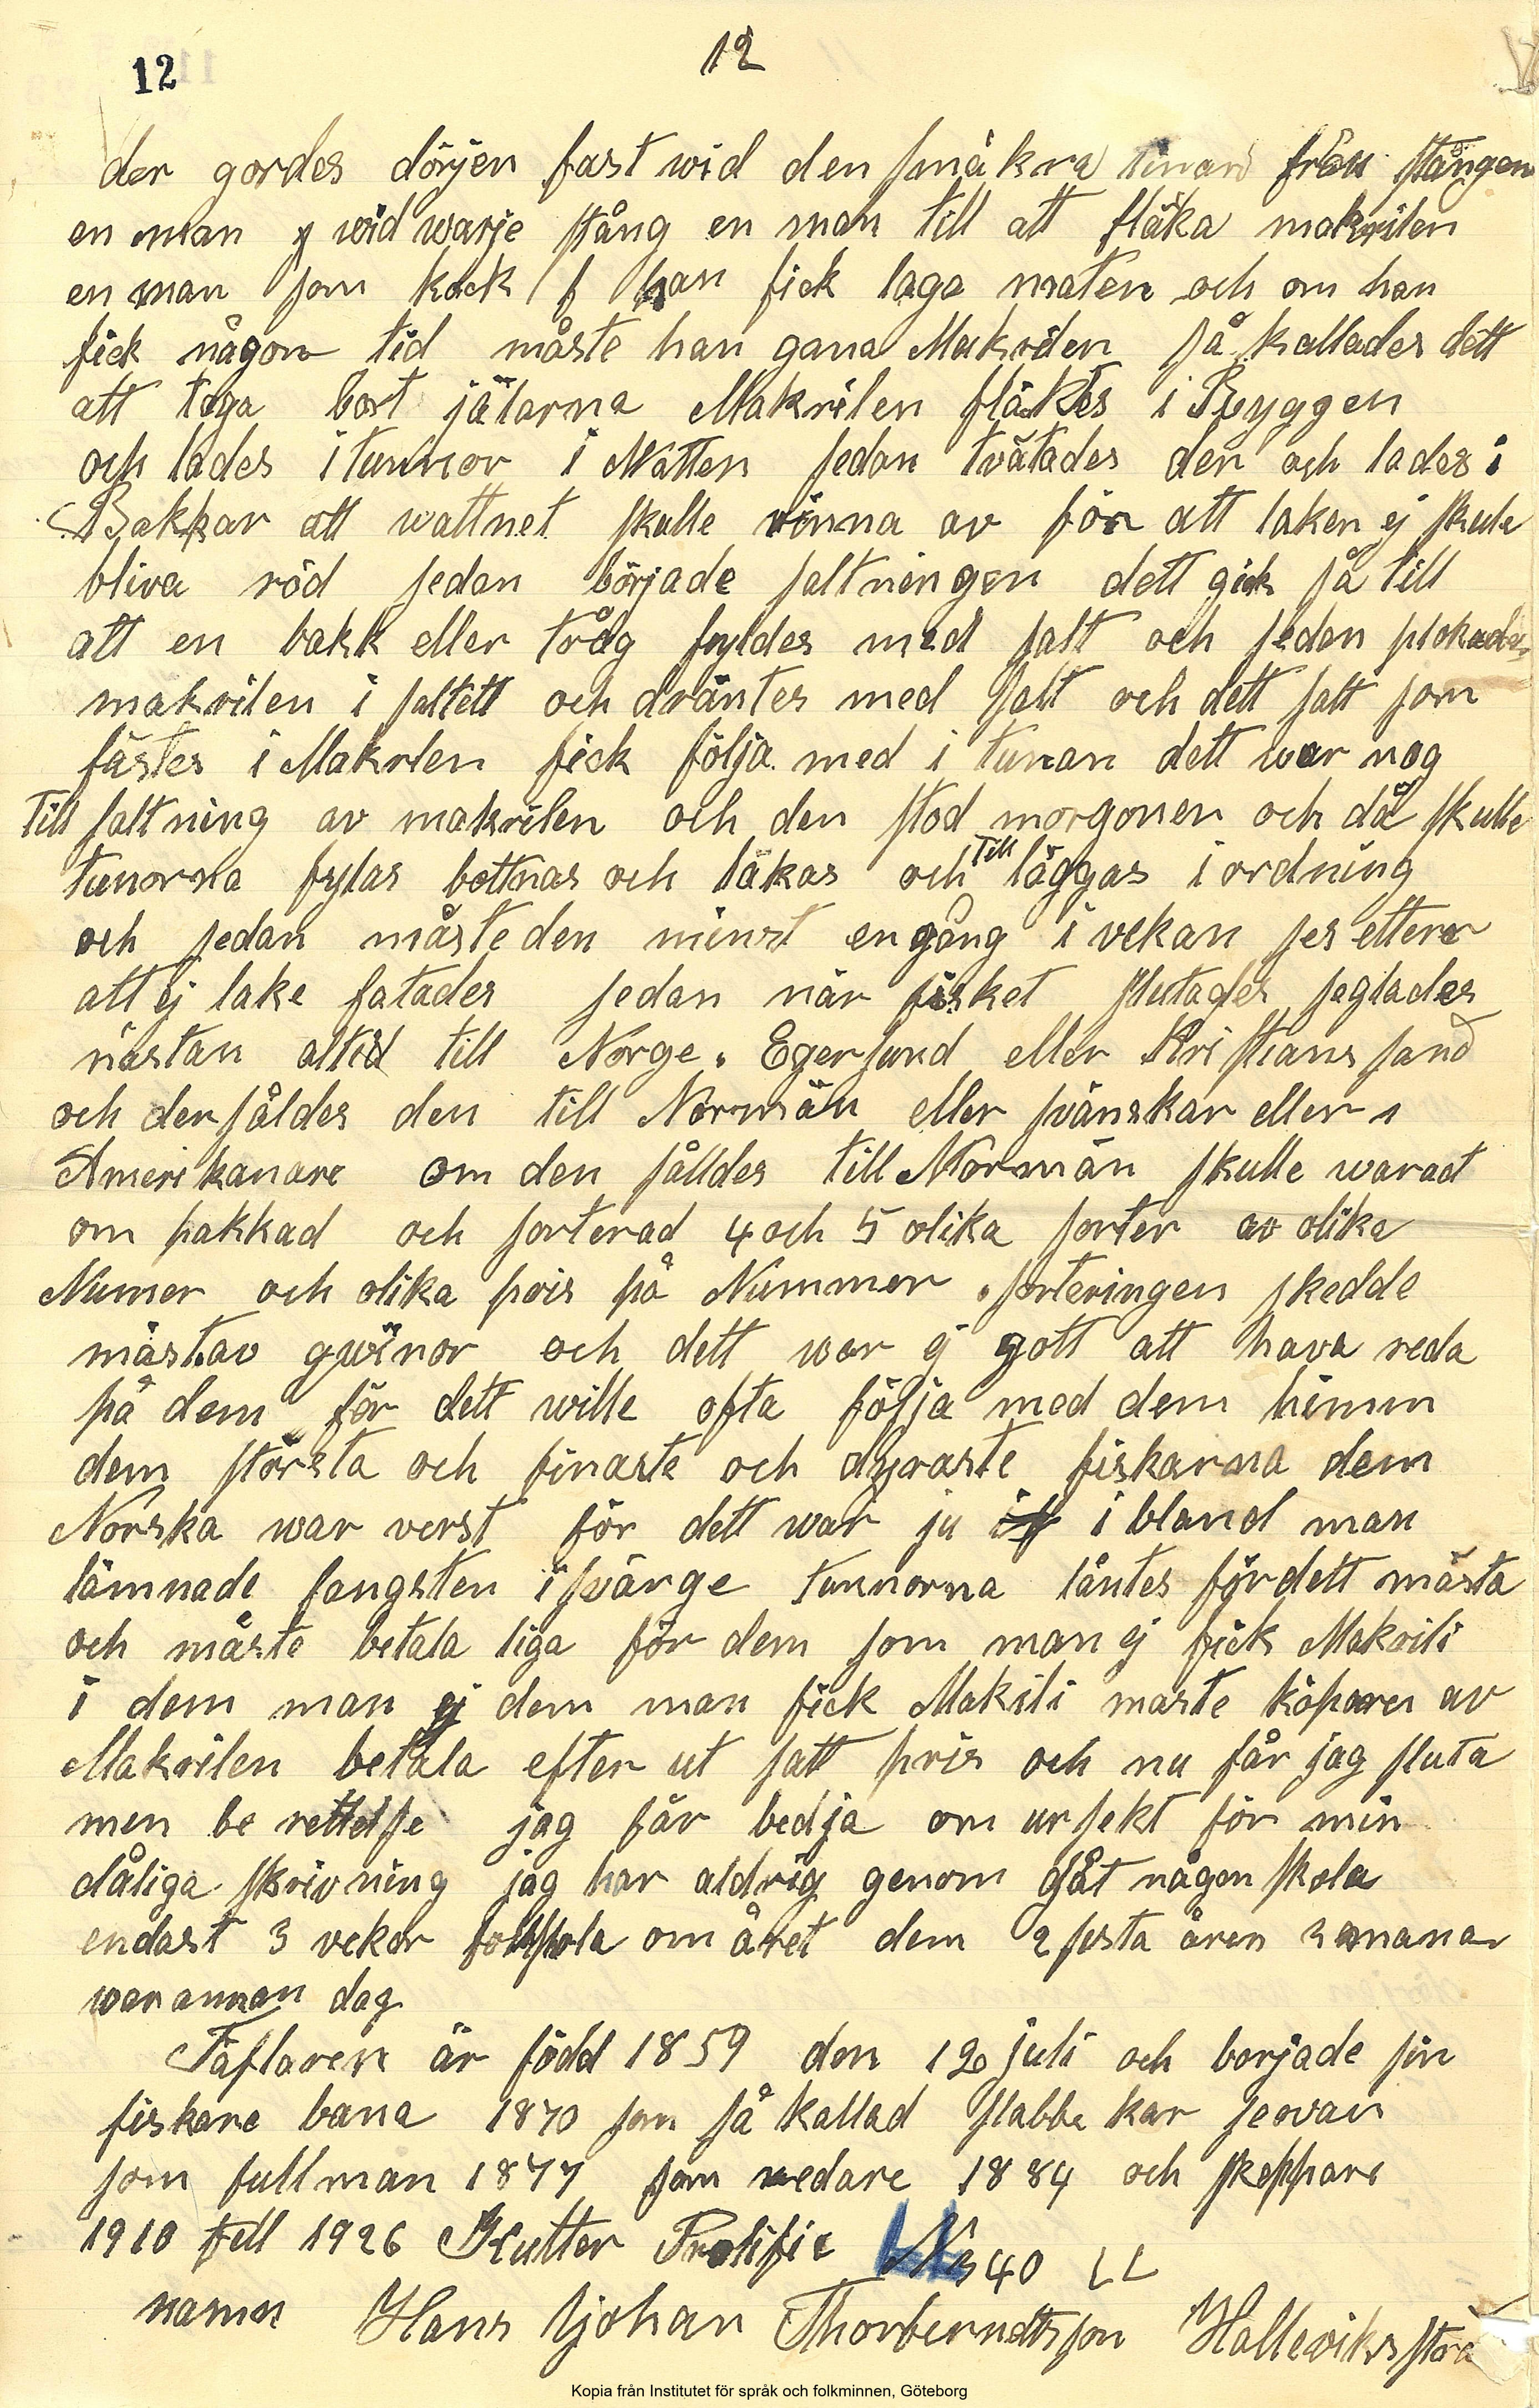 12
12
der gordes dörjen fast wid den smäkra från stången
en man wid warje stång en man till att fläka makrilen
en man som kock han fick laga maten och om han
fick någon tid måste han gana Makrilen så kallades dett
att taga bort jälarna Makrilen fläktes i Ryggen
och lades i tunnor i Natten sedan tvätades den och lades i
Bakkar att wattnet skulle rinna av för att laken ej skule
bliva röd sedan började saltningen dett gick så till
att en bakk eller tråg fyldes med salt och sedan
makrilen i saltett och dräntes med salt och dett salt som
fästes i Makrlen fick följa med i tunan dett war nog
till saltning av makrilen och den stod morgonen och då skulle
till
tunorna fylas bottnas och läkas och läggas i ordning
och sedan måste den minst en gång i vekan ses etterr
att ej lake fatades sedan när fisket slutades seglades
nästan altid till Norge. Egersund eller Kristians sand
och der såldes den till Normän eller svänskar eller
Amerikanare om den sålldes till Normän skulle warad
om pakkad och sorterad 4 och 5 olika sorter av olika
Numer och olika pris på Nummer sorteringen skedde
mäst av qwinor och dett war ej gott att hava reda
på dem för dett wille ofta följa med dem himm
dem största och finaste och dyraste fiskarna dem
Norska war verst för dett war ju i bland man
lämnade fangsten i svärge tunnorna låntes för dett mästa
och måste betala liga för dem som man ej fick Makrili
i dem man ej dem man fick Makili maste köparen av
Makrilen betala efter ut satt pris och nu får jag sluta
men be rettelse jag får bedja om ursekt för min
dåliga skrivning jag har aldrig genom gåt någon skola
endast 3 vekor om året dem 2 festa åren
war annan dag
Täflaren är född 1859 den 12 juli och borjade sin
fiskare bana 1870 som så kallad slabbe kar
som full man 1877 som redare 1884 och skeppare
1910 till 1926 Kutter Prolific No 40 LL
namn Hans Johan Thorberndtsson
Kopia från Institutet för språk och folkminnen, Göteborg